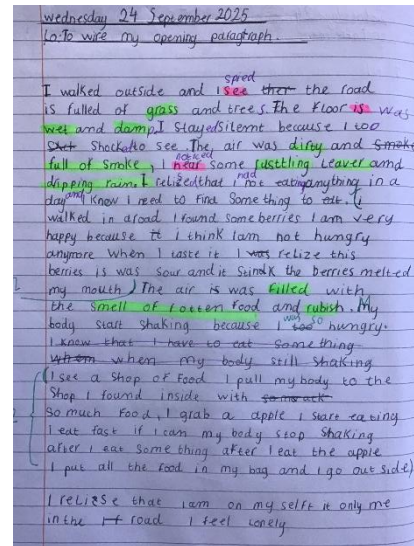 wednesday 24 September 2025
Lo: To wire my opening paragraph.
spied
I walked outside and I see ther the road
is fulled of grass and trees. The floor is was
wet and damp. I stayed silemt because I too
Shocked to see. The, air was dirty and smoke
noticed
full of smoke, I hear some rusttling leaver amd
had
dripping rain. I relized that i not eating anything in a
day and I know I need to find Some thing to eat. (i
walked in a road I round some berries I am very
happy because it i think I am not hungry
anymore when I taste it I was relize this
berries is was sour and it stindk the berries melted
my mouth) The air is was filled with
the smell of rotten food and rubish. My
was so
body start shaking because I too hungry.
I know that I have to eat something
when my body still shaking
(I see a shop of food I pull my body to the
shop I found inside with
So much food, I grab a apple I start eating
I eat fast if I can my body stop shaking
after i eat some thing after I eat the apple
I put all the food in my bag and I go out side)
I reliese that I am on my selft it only me
in the road I feel lonely